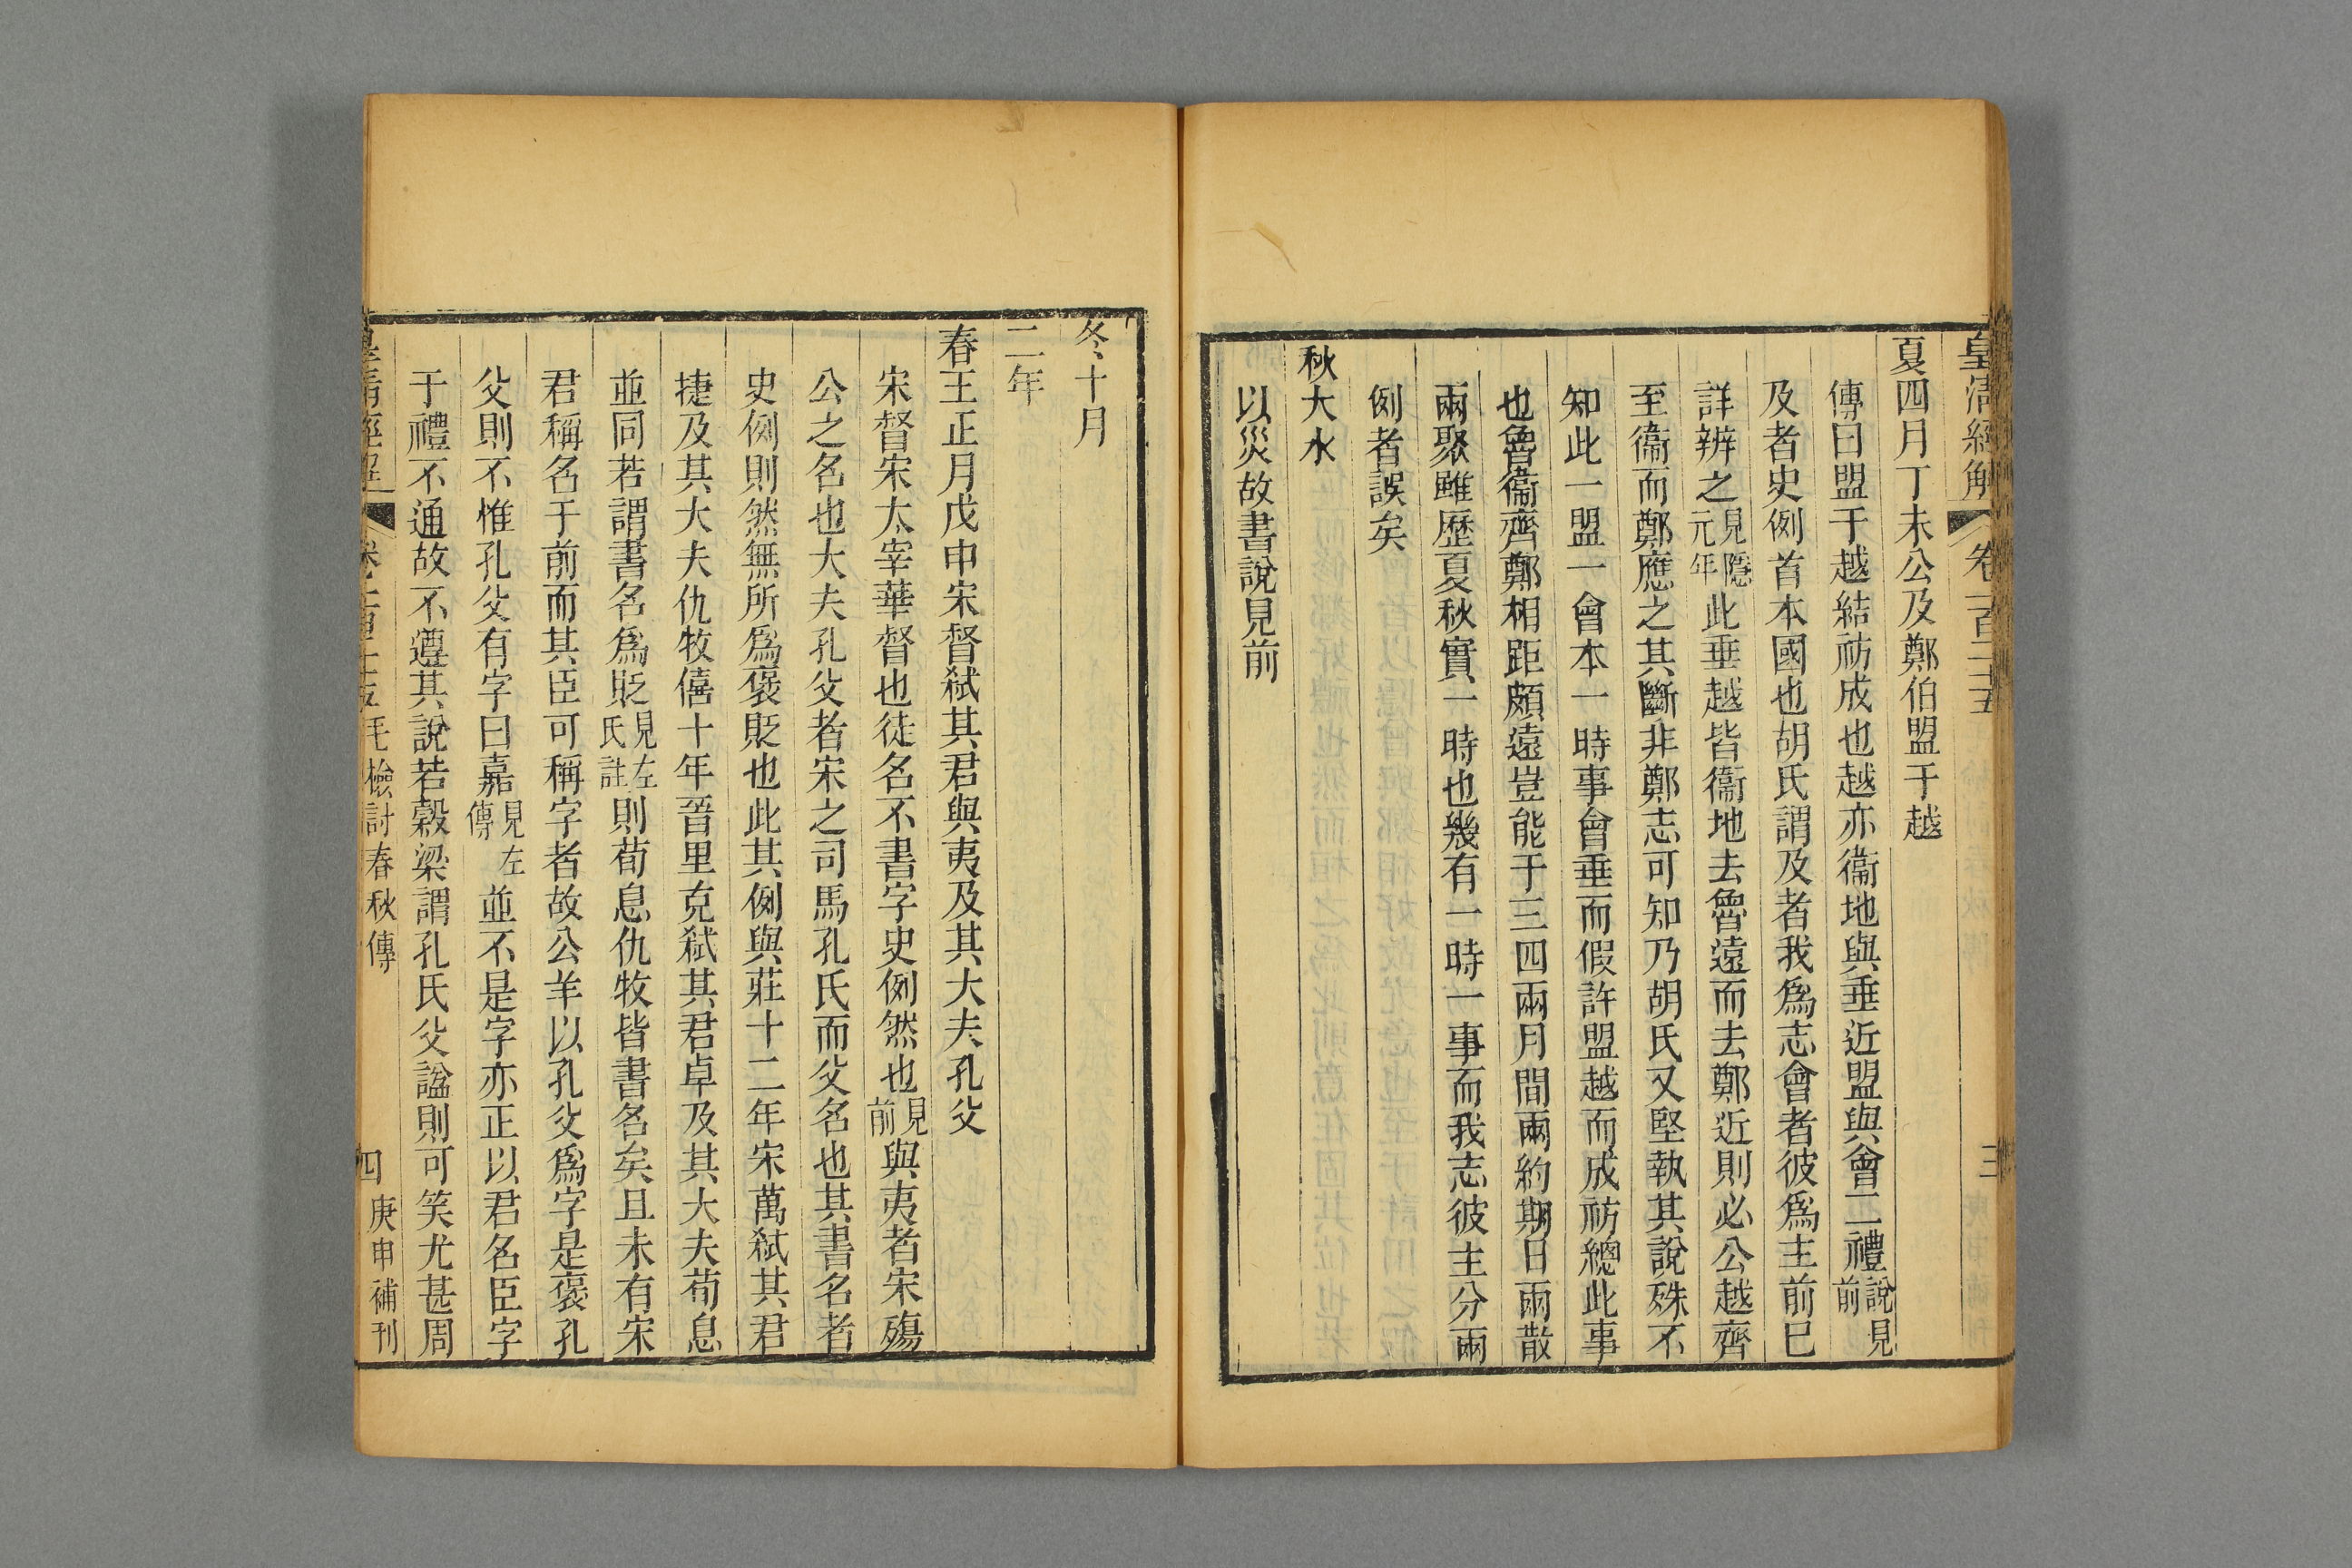 皇清經解 卷一百二十五 三
夏四月丁未公及鄭伯盟于越
傳曰盟于越結祊成也越亦衞地與垂近盟與會二禮說見前
及者史例首本國也胡氏謂及者我爲志會者彼爲主前已
詳辨之見隱元年此垂越皆衞地去魯遠而去鄭近則必公越齊
至衞而鄭應之其斷非鄭志可知乃胡氏又堅執其說殊不
知此一盟一會本一時事會垂而假許盟越而成祊總此事
也魯衞齊鄭相距頗遠豈能于三四兩月間兩約期日兩散
兩聚雖歷夏秋實一時也幾有一時一事而我志彼主分兩
例者誤矣
秋大水
以災故書說見前
冬十月
二年
春王正月戊申宋督弒其君與夷及其大夫孔父
宋督宋太宰華督也徒名不書字史例然也見前與夷者宋殤
公之名也大夫孔父者宋之司馬孔氏而父名也其書名者
史例則然無所爲襃貶也此其例與莊十二年宋萬弒其君
捷及其大夫仇牧僖十年晉里克弒其君卓及其大夫荀息
並同若謂書名爲貶見左氏註則荀息仇牧皆書名矣且未有宋
君稱名于前而其臣可稱字者故公羊以孔父爲字是襃孔
父則不惟孔父有字曰嘉見左傳並不是字亦正以君名臣字
于禮不通故不遵其說若穀梁謂孔氏父諡則可笑尤甚周
皇清經解 卷一百二十五 毛檢討春秋傳 四 庚申補刊